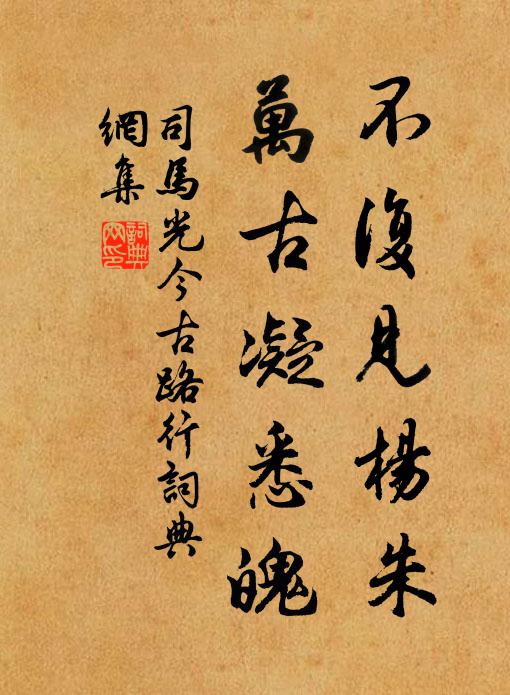 不復見楊朱
萬古凝悉魄
司馬光今古路行詞典
網集
詞典
网印